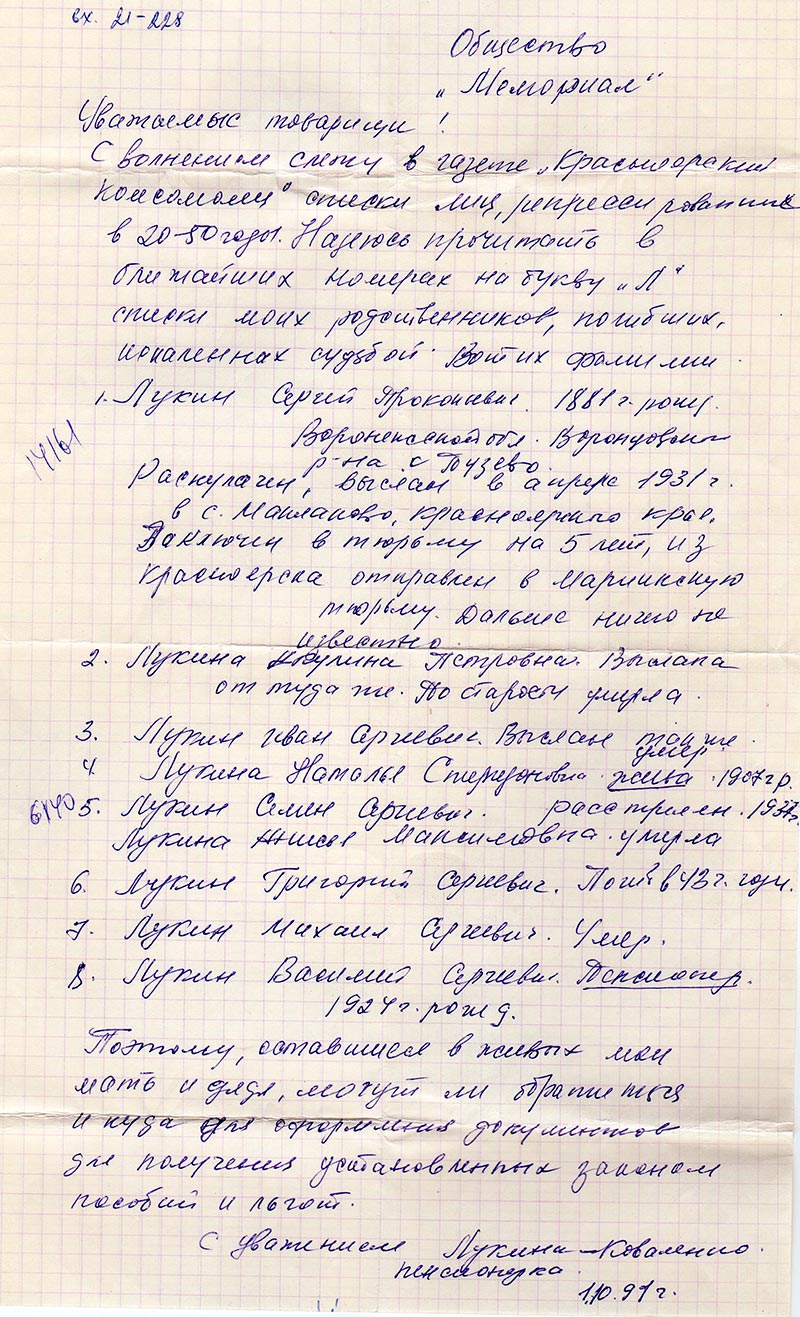 вх. 21-228
Общество
„Мемориал“
Уважаемые товарищи!
С волнением слежу в газете „Красноярский
комсомолец“ списки лиц, репрессированных
в 20-50 годы. Надеюсь прочитать в
ближайших номерах на букву „Л“
списки моих родственников, погибших,
опаленных судьбой. Вот их фамилии
1. Лукин Сергей Прокопьевич. 1881 г. рожд.
Воронежской обл. Воронцовский
р-на с.
14161
Раскулачен, выслан в апреле 1931 г.
в с. Маклаково, Красноярского края.
Заключен в тюрьму на 5 лет, из
Красноярска отправлен в Мариинскую
тюрьму. Дальше ничего не
известно.
2. Лукина Акулина Петровна. Выслана
оттуда же. По старости умерла.
3. Лукин Иван Сергеевич. Выслан там же.
умер.
4. Лукина Наталья Спиридоновна жива. 1907 г р.
6140 5. Лукин Семен Сергеевич. расстрелян. 1937 г.
Лукина Максимовна. умерла
6. Лукин Григорий Сергеевич. Погиб в 43 г.
7. Лукин Михаил Сергеевич. Умер.
8. Лукин Василий Сергеевич. Пенсионер.
1924 г. рожд.
Поэтому, оставшиеся в живых мои
мать и дядя, могут ли обратиться
и куда для оформления документов
для получения установленных законом
пособий и льгот.
С уважением Лукина-Коваленко.
пенсионерка.
1.10.91 г.